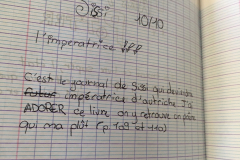 Sissi 10/10
l'imperatrice fff
C'est le journal de Sissi qui deviendra
future impératrice d'autriche J'ai
ADORER ce livre on y retrouve un poème
qui ma plût (p.109 et 110)